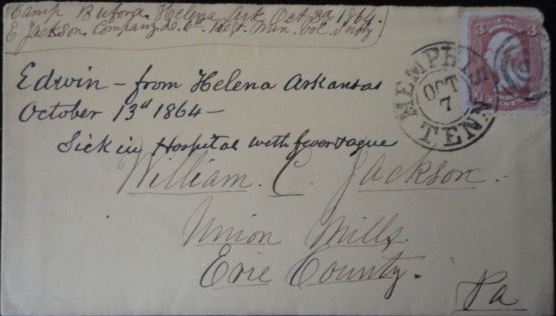 Camp Buford Helena Ark Oct 3d 1864.
E Jackson, Company D. 6th Regt. Min. Vol. Infty
Edwin – from Helena Arkansas
October 13d 1864 –
Sick in Hospital with fever + ague
William. C. Jackson.
Union Mills.
Erie County.
Pa
MEMPHIS
OCT
7
TENN
3 3